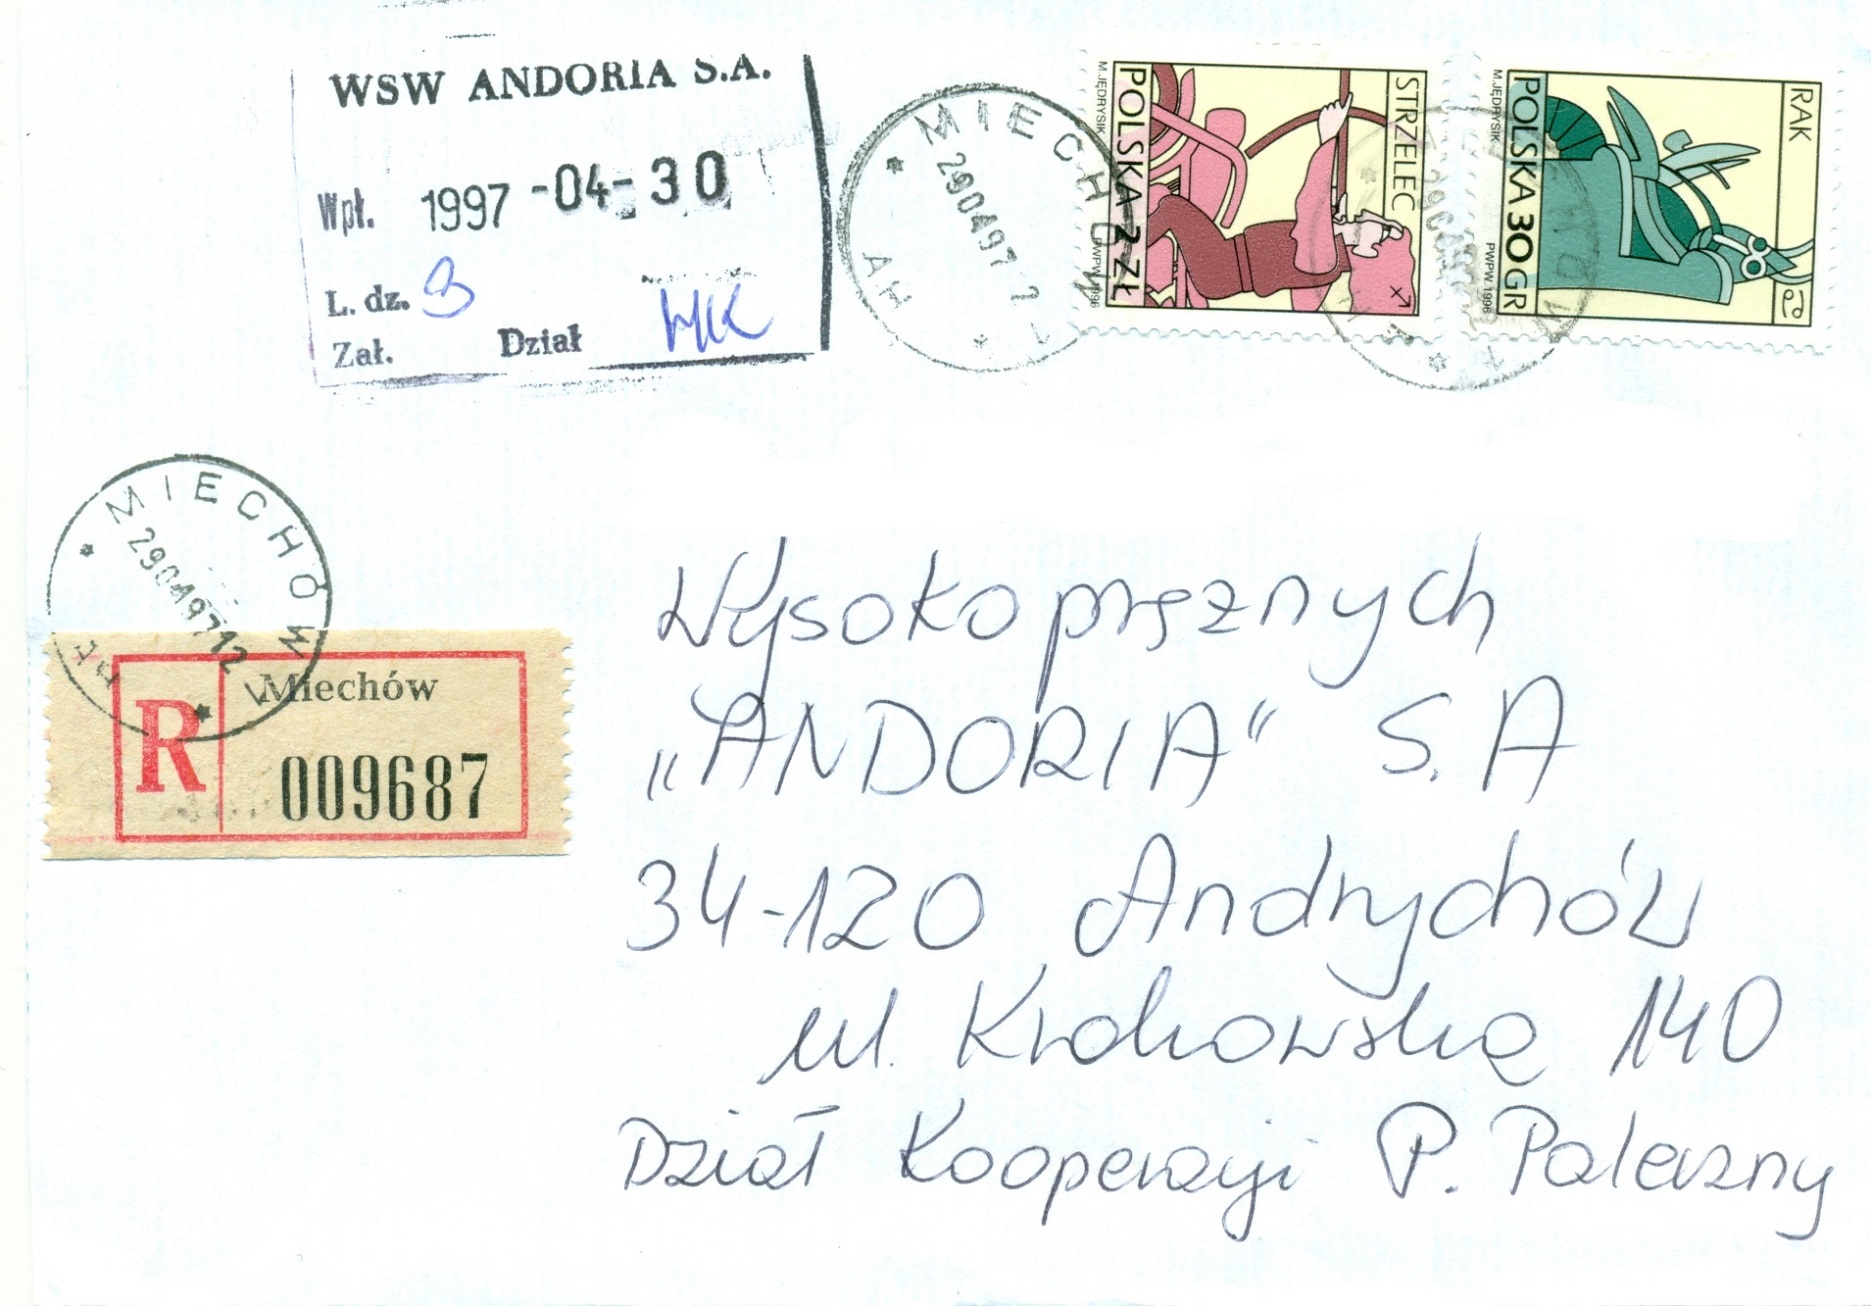 WSW ANDORIA S.A.
Wpł. 1997 -04- 30
L. dz. 3
Zał. Dział HK
MIECHÓW 1
290497
AH
M.JĘDRYSIK
POLSKA 2 ZŁ
PWPW 1996
STRZELEC
M.JĘDRYSIK
POLSKA 30 GR
PWPW 1996
RAK
MIECHÓW 1
290497 12
AH
R
Miechów
009687
Wysokoprężnych
„ANDORIA" S.A
34-120 Andrychów
ul. Krakowska 140
Dział Kooperacji P. Paleczny